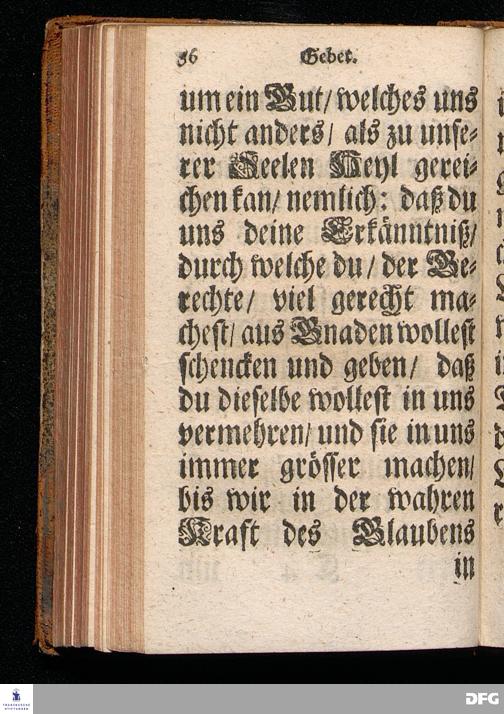 86 Gebet.
um ein Gut/ welches uns
nicht anders/ als zu unse-
rer Seelen Heyl gerei-
chen kan/ nemlich: daß du
uns deine Erkänntniß/
durch welche du/ der Ge-
rechte/ viel gerecht ma-
chest/ aus Gnaden wollest
schencken und geben/ daß
du dieselbe wollest in uns
vermehren/ und sie in uns
immer grösser machen/
bis wir in der wahren
Kraft des Glaubens
in
FRANCKESCHE
STIFTUNGEN
DFG